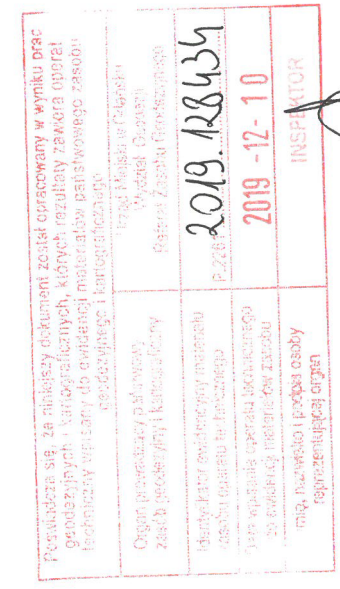 Poświadcza się, że niniejszy dokument został opracowany w wyniku prac
geodezyjnych i kartograficznych, których rezultaty zawiera operat
techniczny wpisany do ewidencji materiałów państwowego zasobu
geodezyjnego i kartograficznego
Organ prowadzący państwowy
zasób geodezyjny i kartograficzny
Urząd Miejski w
Wydział Geodezji
Referat Zasobu Geodezyjnego
Identyfikator ewidencyjny materiału
zasobu operatu technicznego
2019.128434
Data wpisania operatu technicznego
do ewidencji materiałów zasobu
2019 -12- 10
Imię, nazwisko i podpis osoby
reprezentującej organ
INSPEKTOR